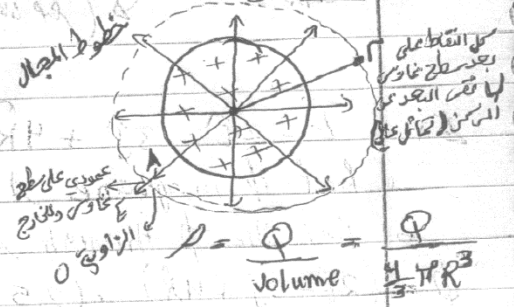 خطوط المجال
r
كل النقاط على
بعد سطح غاوس
لها نفس البعد عن
المركز (تماثل عالي)
+ + + + + + + + +
A
عمودي على سطح
غاوس وللخارج
الزاوية 0
ρ = Q / volume = Q / 4/3 π R³